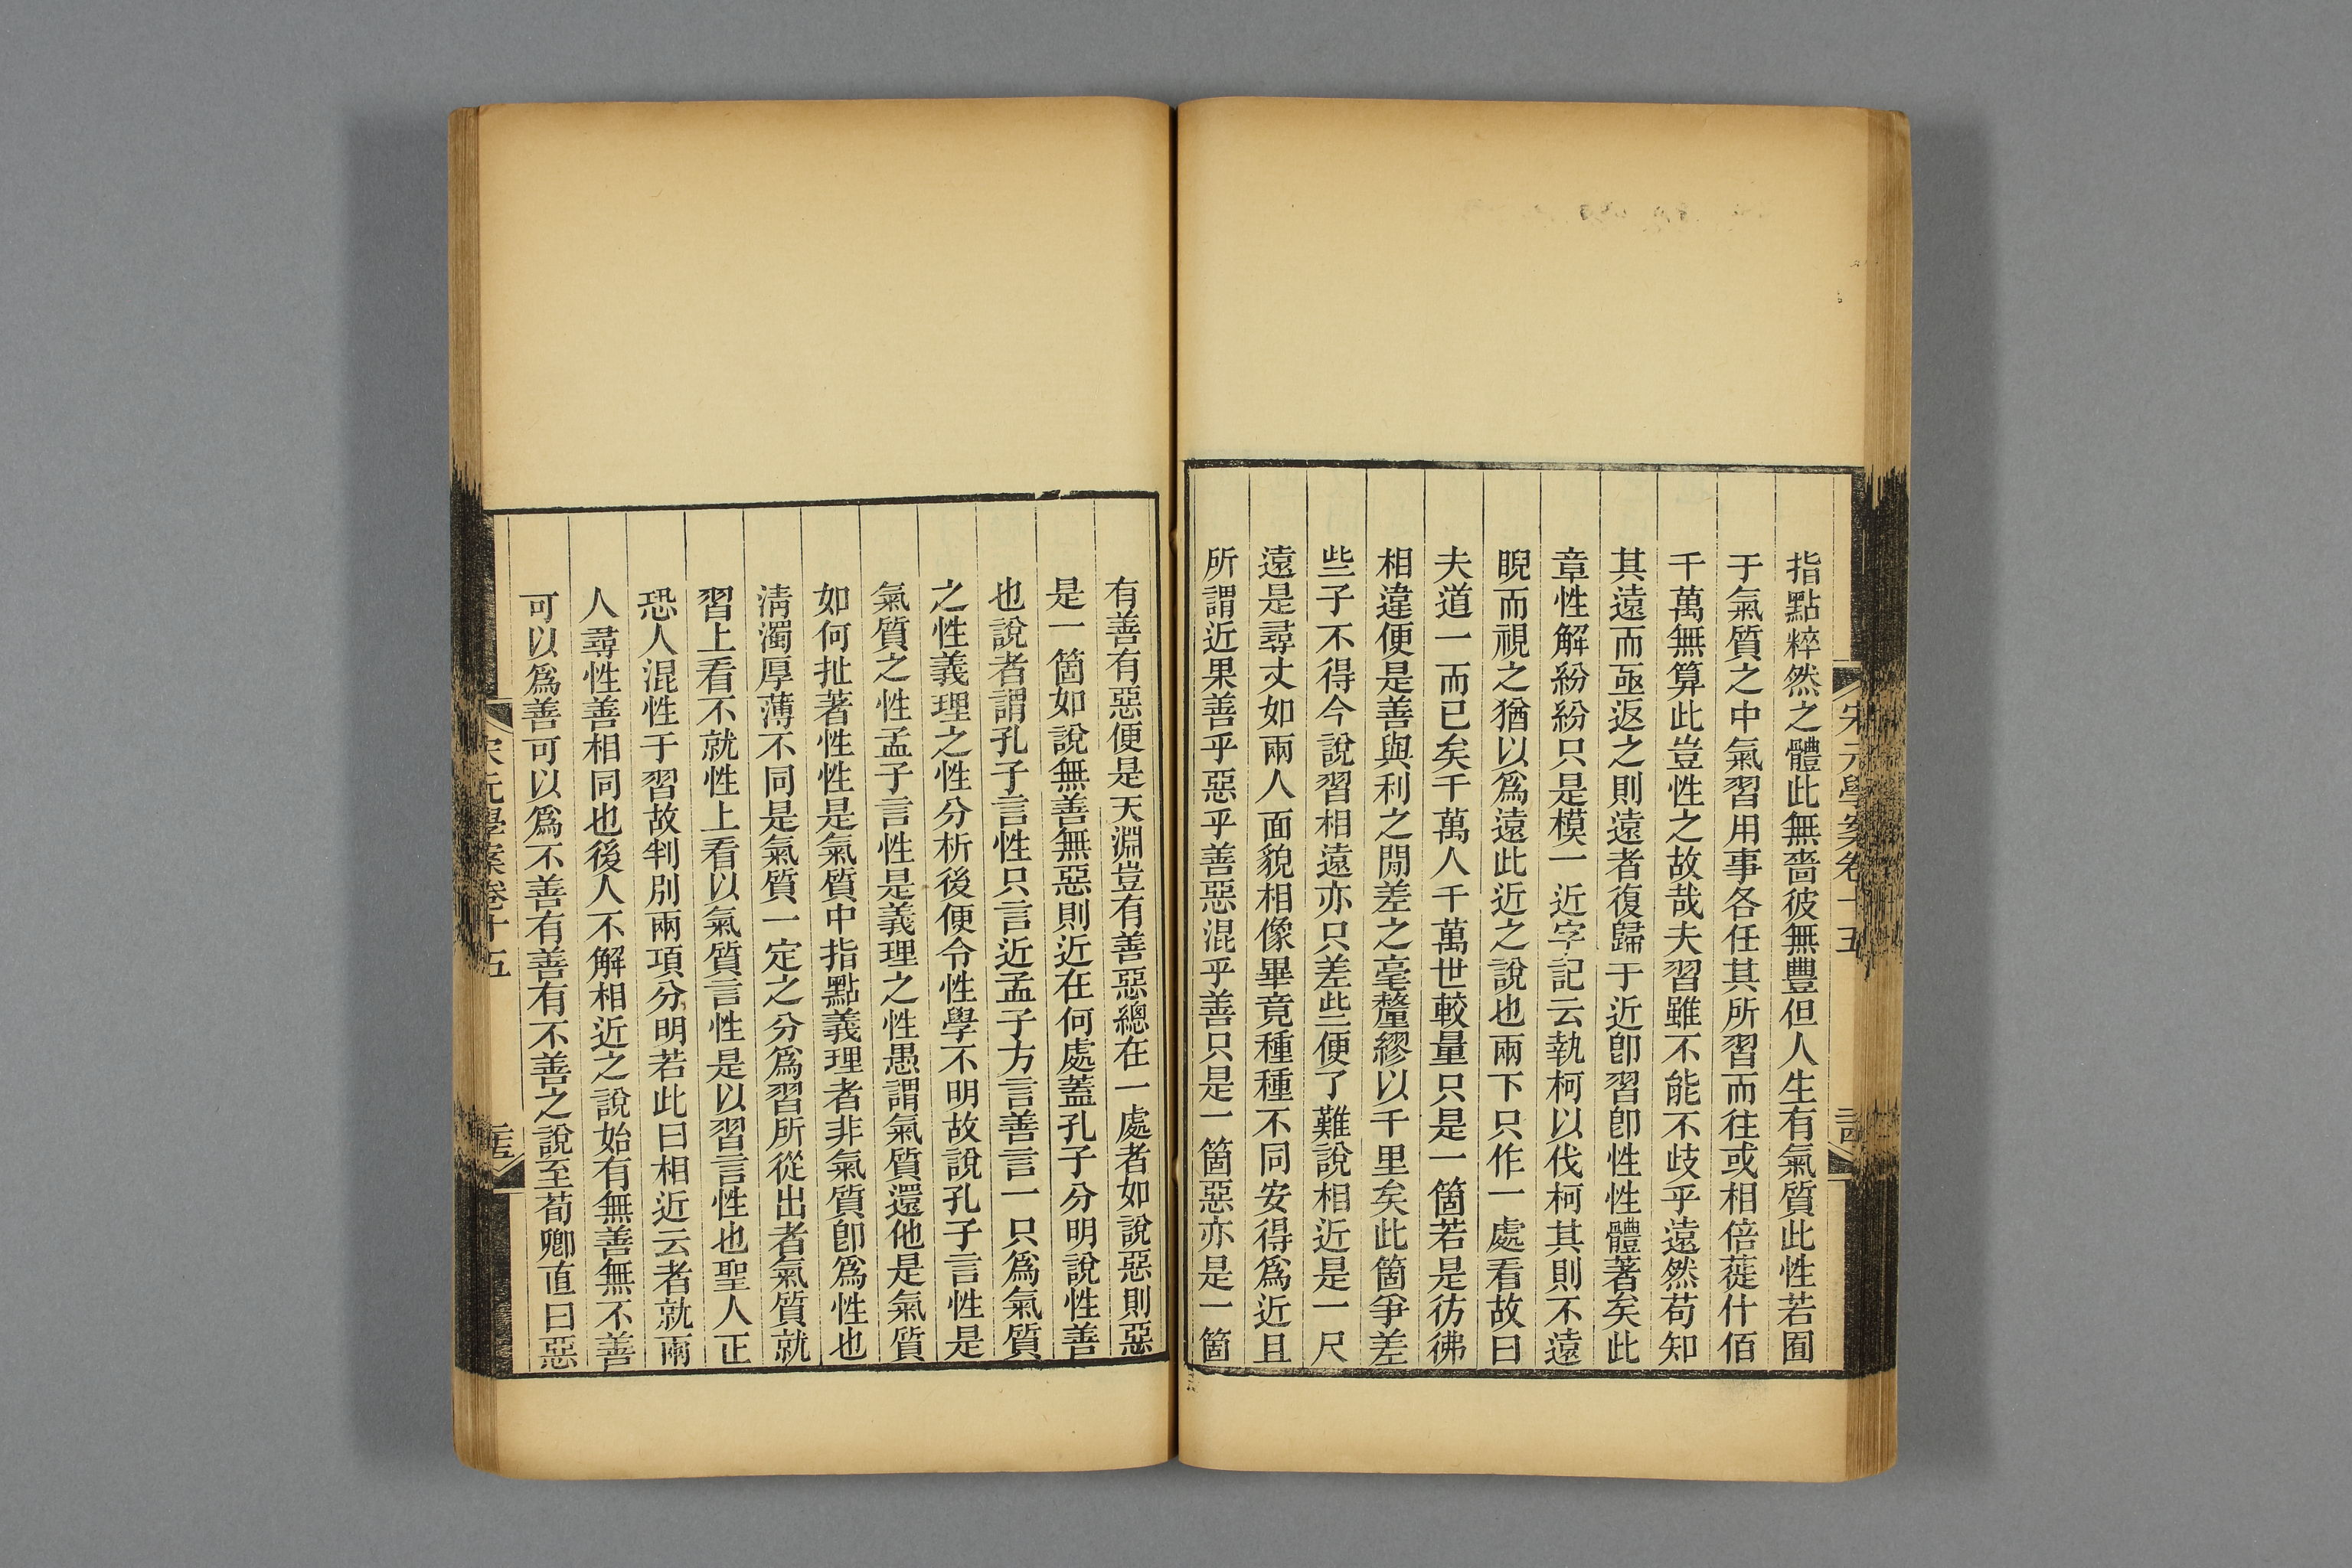 宋元學案卷十五
指點粹然之體此無嗇彼無豐但人生有氣質此性若囿
于氣質之中氣習用事各任其所習而往或相倍蓰什佰
千萬無算此豈性之故哉夫習雖不能不歧乎遠然苟知
其遠而亟返之則遠者復歸于近卽習卽性性體著矣此
章性解紛紛只是模一近字記云執柯以伐柯其則不遠
睨而視之猶以爲遠此近之說也兩下只作一處看故曰
夫道一而已矣千萬人千萬世較量只是一箇若是彷彿
相違便是善與利之閒差之毫釐繆以千里矣此箇爭差
些子不得今說習相遠亦只差些便了難說相近是一尺
遠是尋丈如兩人面貌相像畢竟種種不同安得爲近且
所謂近果善乎惡乎善惡混乎善只是一箇惡亦是一箇
有善有惡便是天淵豈有善惡總在一處者如說惡則惡
是一箇如說無善無惡則近在何處蓋孔子分明說性善
也說者謂孔子言性只言近孟子方言善言一只爲氣質
之性義理之性分析後便令性學不明故說孔子言性是
氣質之性孟子言性是義理之性愚謂氣質還他是氣質
如何扯著性性是氣質中指點義理者非氣質卽爲性也
淸濁厚薄不同是氣質一定之分爲習所從出者氣質就
習上看不就性上看以氣質言性是以習言性也聖人正
恐人混性于習故判別兩項分明若此曰相近云者就兩
人尋性善相同也後人不解相近之說始有無善無不善
可以爲善可以爲不善有善有不善之說至荀卿直曰惡
宋元學案卷十五